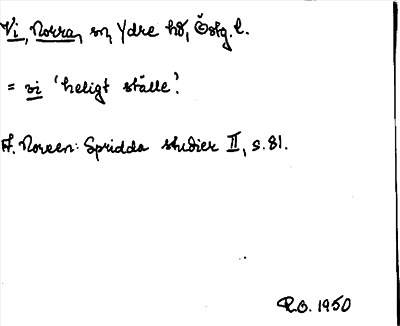 Vi, Norra, sn, Ydre hd, Östg. l.
= vi 'heligt ställe'.
A. Noreen: Spridda studier II, s. 81.
R.O. 1950